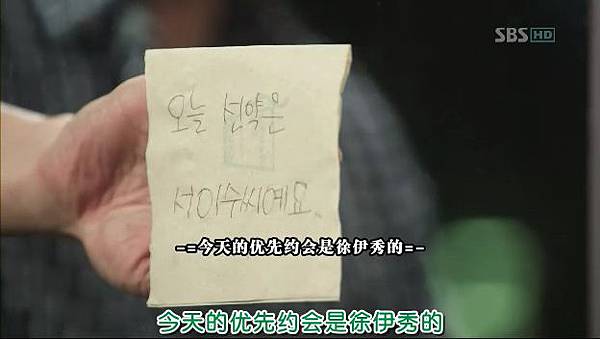 SBS HD
오늘 선약은
서이수씨예요.
-=今天的优先约会是徐伊秀的=-
今天的优先约会是徐伊秀的